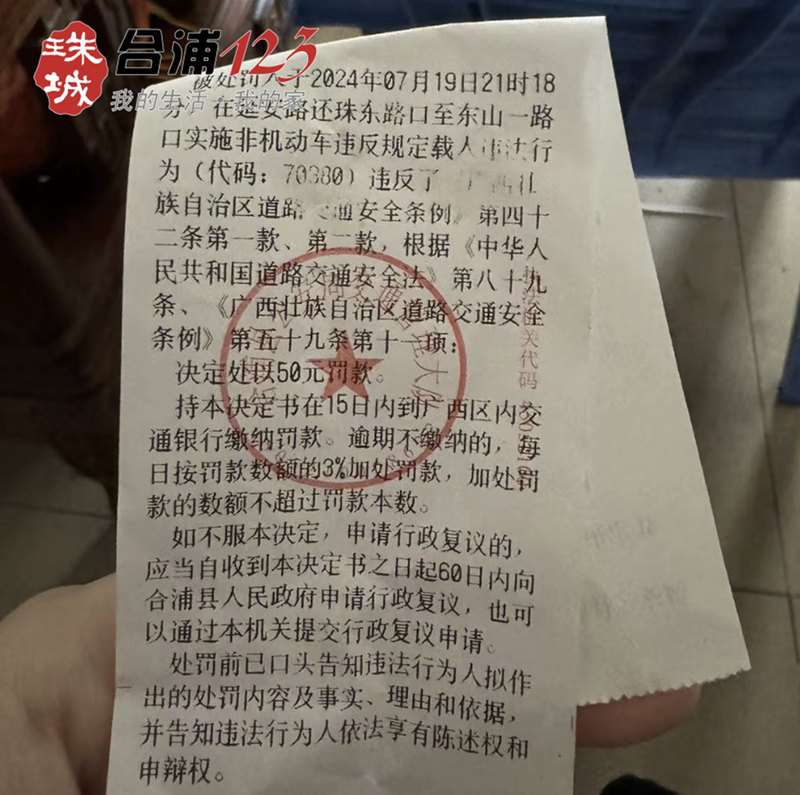 珠城
合浦123
我的生活 我的家
被处罚人于2024年07月19日21时18
分 在延安路还珠东路口至东山一路
口实施非机动车违反规定载人违法行
为(代码: 70380)违反了 广西壮
族自治区道路交通安全条例》第四十
二条第一款、第二款, 根据《中华人
民共和国道路交通安全法》第八十九
条、《广西壮族自治区道路交通安全
条例》第五十九条第十一项:
决定处以50元罚款。
持本决定书在15日内到广西区内交
通银行缴纳罚款。逾期不缴纳的, 每
日按罚款数额的3%加处罚款, 加处罚
款的数额不超过罚款本数。
如不服本决定, 申请行政复议的,
应当自收到本决定书之日起60日内向
合浦县人民政府申请行政复议, 也可
以通过本机关提交行政复议申请。
处罚前已口头告知违法行为人拟作
出的处罚内容及事实、理由和依据,
并告知违法行为人依法享有陈述权和
申辩权。
关代码